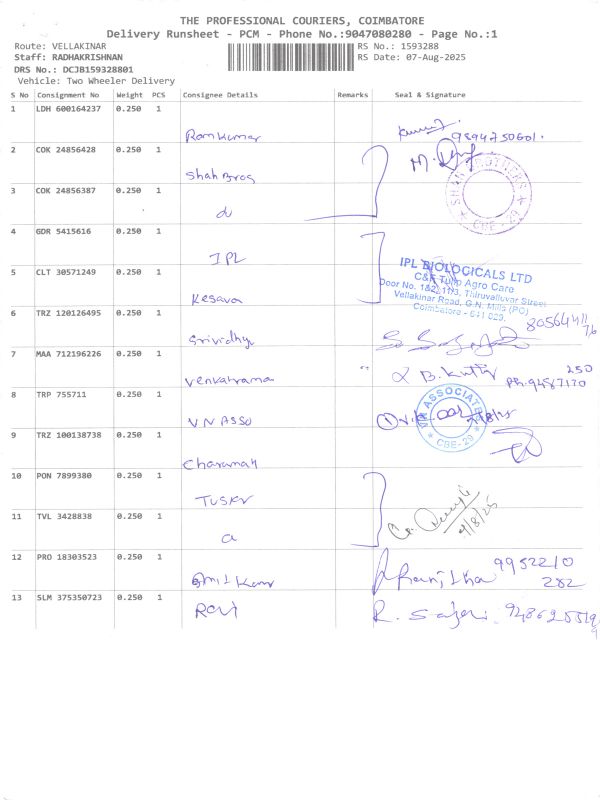 THE PROFESSIONAL COURIERS, COIMBATORE
Delivery Runsheet - PCM - Phone No.:9047080280 - Page No.:1
Route: VELLAKINAR
RS No.: 1593288
Staff: RADHAKRISHNAN
RS Date: 07-Aug-2025
DRS No.: DCJB159328801
Vehicle: Two Wheeler Delivery
S No Consignment No Weight PCS Consignee Details Remarks Seal & Signature
1 LDH 600164237 0.250 1
Ramkumar 9894750601.
2 COK 24856428 0.250 1
Shah Bros
SHAH BROTHERS
★ CBE-29 ★
3 COK 24856387 0.250 1
do
4 GDR 5415616 0.250 1
IPL
IPL BIOLOGICALS LTD
C&F Tulip Agro Care
Door No. 1&2, 11/3, Thiruvalluvar Street
Vellakinar Road, G.N. Mills (PO)
Coimbatore - 641 029.
5 CLT 30571249 0.250 1
Kesava
6 TRZ 120126495 0.250 1
Srividhya
7 MAA 712196226 0.250 1
Venkatrama B. Kutty
8 TRP 755711 0.250 1
VN ASSO
VN ASSOCIATES
★ CBE-29 ★
9 TRZ 100138738 0.250 1
10 PON 7899380 0.250 1
TUSKY
7/8/25
11 TVL 3428838 0.250 1
12 PRO 18303523 0.250 1
Ranjitha 9952210
282
13 SLM 375350723 0.250 1
Ravi R.